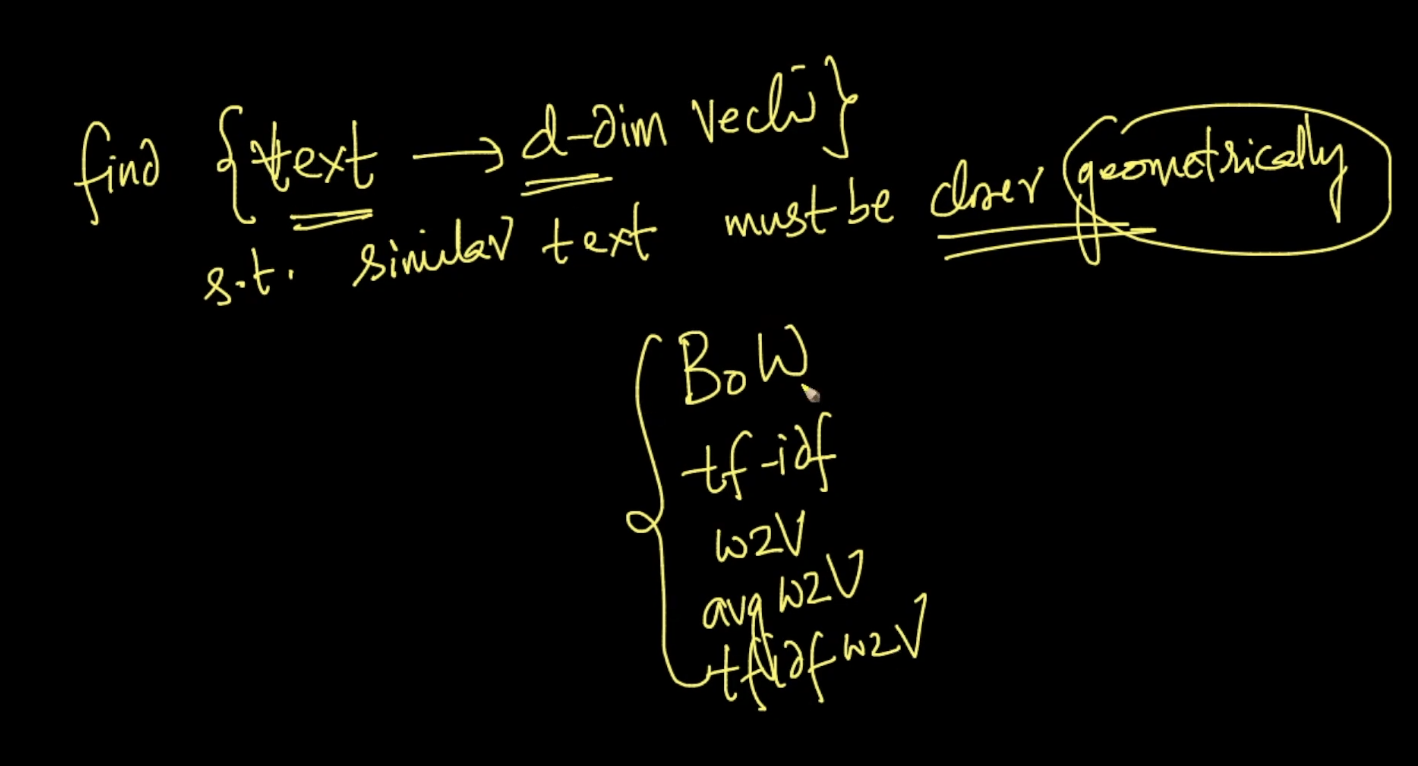 find {text → d-dim vector}
s.t. similar text must be closer geometrically
BoW
tf-idf
w2V
avg W2V
tfidf w2V